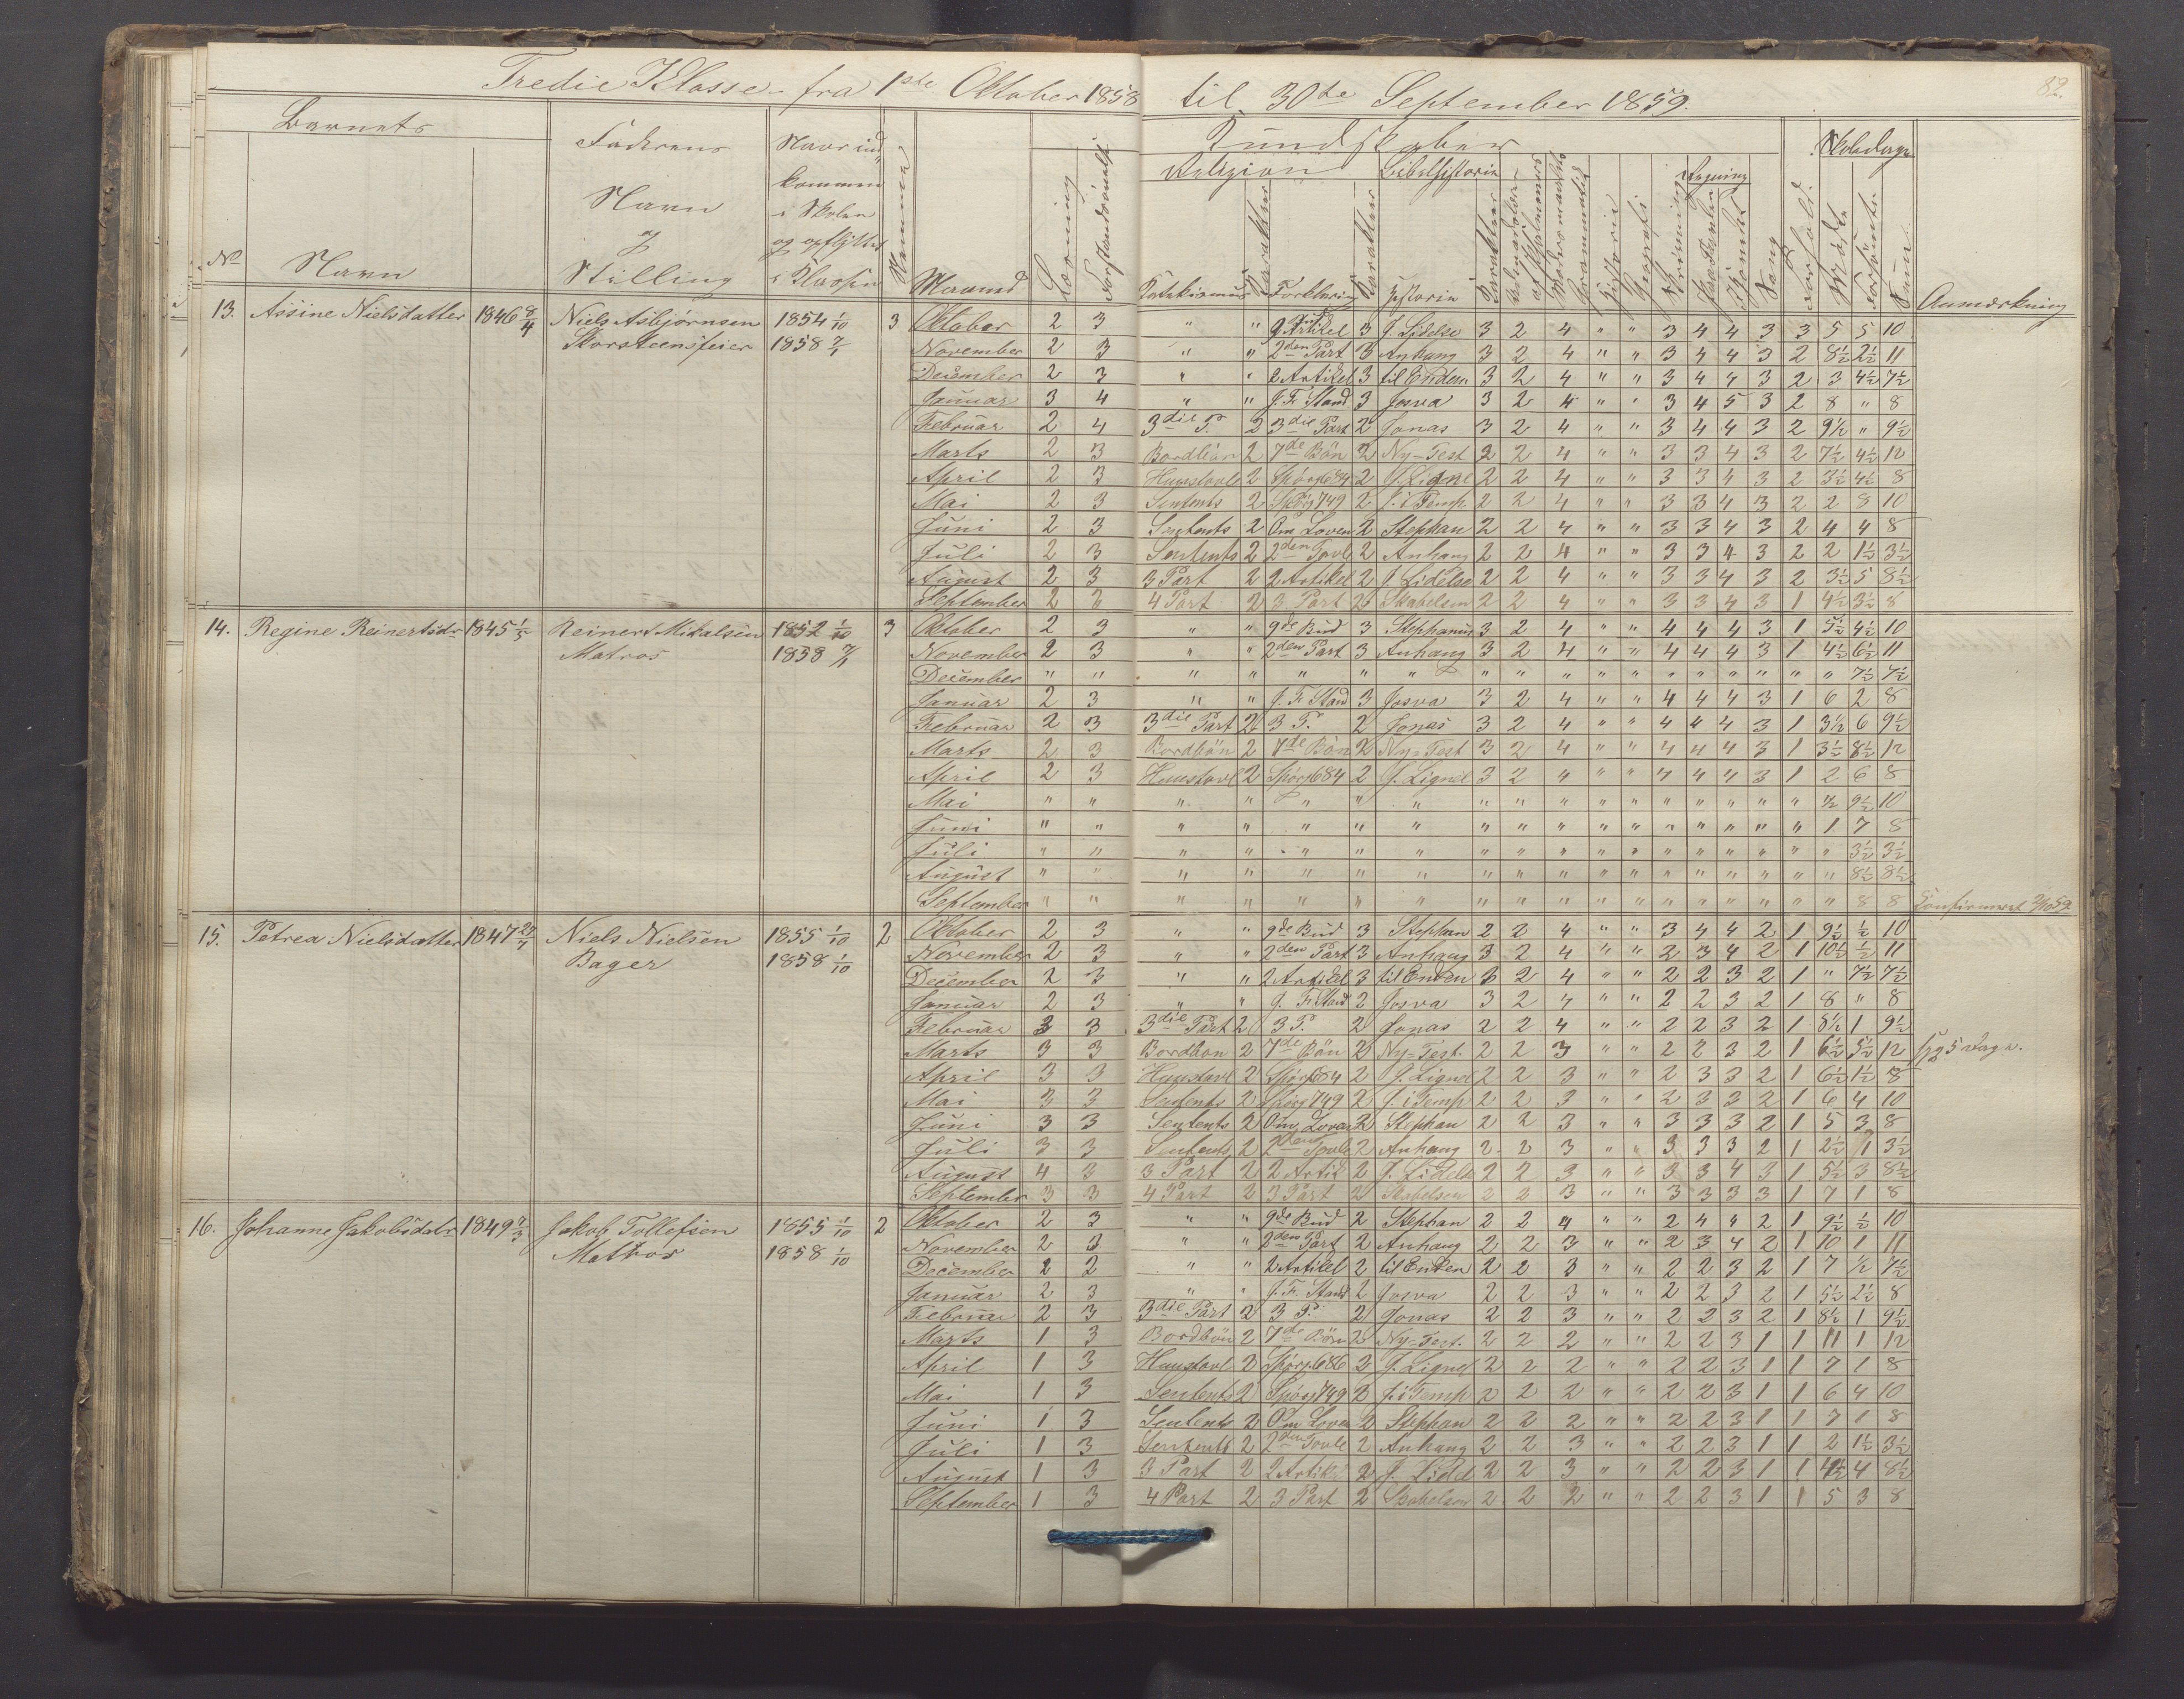 Tredie Klasse fra 1ste Oktober 1858 til 30te September 1859.
82.
Barnets
Faderens Navn og Stilling
Naar ind kommen i Skolen og opflyttet i Klassen
Kundskaber
Skoledage
No
Navn
Nummer
Maaned
Læsning
Religion
Bibelhistorie
Regning
Katekismus
Karakter
Forklaring
Karakter
Historie
Karakter
Grammatik
Historie
Geografi
Skrivning
Sang
Forhold
Mødte
Forsømte
Sum
Anmærkning
13. Assine Nielsdatter 1846 8/4 Niels Asbjørnsen 1854 1/10 3 Oktober 2 3 " " 9de Bud Artikel 3 J. Lidelse 3 2 4 " " 3 4 4 3 3 5 5 10
Skorsteensfeier 1858 7/1 November 2 3 " " 2den Part 3 Anhang 3 2 4 " " 3 4 4 3 2 8½ 2½ 11
December 2 3 " " 2 Artikel 3 til Enden 3 2 4 " " 3 4 4 3 2 3 4½ 7½
Januar 3 4 " " J. Fr. Stand 3 Josva 3 2 4 " " 3 4 5 3 2 8 " 8
Februar 2 4 3die P. 2 3die Part 2 Jonas 3 2 4 " " 3 4 4 3 2 9½ " 9½
Marts 2 3 Bordbön 2 7de Bön 2 Ny-Test 2 2 4 " " 3 3 4 3 2 7½ 4½ 12
April 2 3 Huustavl 2 Spörg 684 2 J. Lignel 2 2 4 " " 3 3 4 3 2 3½ 4½ 8
Mai 2 3 Sentents 2 Spörg 749 2 J. i Temp 2 2 4 " " 3 3 4 3 2 2 8 10
Juni 2 3 Sentents 2 Om Loven 2 Stephan 2 2 4 " " 3 3 4 3 2 4 4 8
Juli 2 3 Sentents 2 2den Tavle 2 Anhang 2 2 4 " " 3 3 4 3 2 2 1½ 3½
August 2 3 3 Part 2 2 Artikel 2 J. Lidelse 2 2 4 " " 3 3 4 3 2 3½ 5 8½
September 2 3 4 Part 2 3 Part 2 Skabelsen 2 2 4 " " 3 3 4 3 1 4½ 3½ 8
14. Regine Reinertsdr 1845 1/5 Reinert Mikalsen 1852 1/10 3 Oktober 2 3 " " 9de Bud 3 Stephanus 3 2 4 " " 4 4 4 3 1 5½ 4½ 10
Matros 1858 7/1 November 2 3 " " 2den Part 3 Anhang 3 2 4 " " 4 4 4 3 1 4½ 6½ 11
December " " " " " " " " " " " " " " " " " " 7½ 7½
Januar 2 3 " " J. Fr. Stand 3 Josva 3 2 4 " " 4 4 4 3 1 6 2 8
Februar 2 3 3die Part 2 3 P. 2 Jonas 3 2 4 " " 4 4 4 3 1 3½ 6 9½
Marts 2 3 Bordbön 2 7de Bön 2 Ny-Test 3 2 4 " " 4 4 4 3 1 3½ 8½ 12
April 2 3 Huustavl 2 Spörg 684 2 J. Lignel 3 2 4 " " 4 4 4 3 1 2 6 8
Mai " " " " " " " " " " " " " " " " " ½ 9½ 10
Juni " " " " " " " " " " " " " " " " " 1 7 8
Juli " " " " " " " " " " " " " " " " " " 3½ 3½
August " " " " " " " " " " " " " " " " " " 8½ 8½
September " " " " " " " " " " " " " " " " " " 8 8 Confirmeret 2/10 59
15. Petrea Nielsdatter 1847 Niels Nielsen 1855 1/10 2 Oktober 2 3 " " 9de Bud 3 Stephan 2 2 4 " " 3 4 4 2 1 9½ ½ 10
Bager 1858 1/10 November 2 3 " " 2den Part 3 Anhang 3 2 4 " " 2 3 4 2 1 10½ ½ 11
December 2 3 " " 2 Artikel 3 til Enden 3 2 4 " " 2 2 3 2 1 " 7½ 7½
Januar 2 3 " " J. Fr Stand 2 Josva 3 2 4 " " 2 2 3 2 1 8 " 8
Februar 3 3 3die Part 2 3 P. 2 Jonas 2 2 4 " " 2 2 3 2 1 8½ 1 9½
Marts 3 3 Bordbon 2 7de Bön 2 Ny-Test. 2 2 3 " " 2 2 3 2 1 6½ 5½ 12 syg 5 Dage.
April 3 3 Huustavl 2 Spörg 684 2 J. Lignel 2 2 3 " " 2 3 3 2 1 6½ 1½ 8
Mai 3 3 Sentents 2 Spörg 749 2 J. i Temp 2 2 3 " " 2 3 3 2 1 6 4 10
Juni 3 3 Sentents 2 Om Loven 2 Stephan 2 2 3 " " 3 3 3 2 1 5 3 8
Juli 3 3 Sentents 2 2den Tavle 2 Anhang 2 2 3 " " 3 3 3 2 1 2½ 1 3½
August 4 3 3 Part 2 2 Artik 2 J. Lidels 2 2 3 " " 3 3 4 3 1 5½ 3 8½
September 3 3 4 Part 2 3 Part 2 Skabelsen 2 2 3 " " 3 3 3 3 1 7 1 8
16. Johanne Jakobsdatr 1849 Jakob Tollefsen 1855 1/10 2 Oktober 2 3 " " 9de Bud 2 Stephan 2 2 4 " " 2 4 4 2 1 9½ ½ 10
Matros 1858 1/10 November 2 3 " " 2den Part 2 Anhang 2 2 3 " " 2 3 4 2 1 10 1 11
December 2 2 " " 2 Artikel 2 til Enden 2 2 3 " " 2 2 3 2 1 7 ½ 7½
Januar 2 3 " " J. Fr. Stand 2 Josva 2 2 3 " " 2 2 3 2 1 5½ 2½ 8
Februar 2 3 3die Part 2 3 P. 2 Jonas 2 2 3 " " 2 2 3 2 1 8½ 1 9½
Marts 1 3 Bordbön 2 7de Bön 2 Ny-Test. 2 2 2 " " 2 2 3 1 1 11 1 12
April 1 3 Huustavl 2 Spörg 686 2 J. Lignel 2 2 2 " " 2 2 3 1 1 7 1 8
Mai 1 3 Sentents 2 Spörg 749 2 J. i Temp 2 2 2 " " 2 2 3 1 1 6 4 10
Juni 1 3 Sentents 2 Om Loven 2 Stephan 2 2 2 " " 2 2 3 1 1 7 1 8
Juli 1 3 Sentents 2 2den Tavle 2 Anhang 2 2 3 " " 2 2 3 1 1 2 1½ 3½
August 1 3 3 Part 2 2 Artik. 2 J. Lidel 2 2 3 " " 2 2 3 1 1 4½ 4 8½
September 1 3 4 Part 2 3 Part 2 Skabelsen 2 2 2 " " 2 2 3 1 1 5 3 8